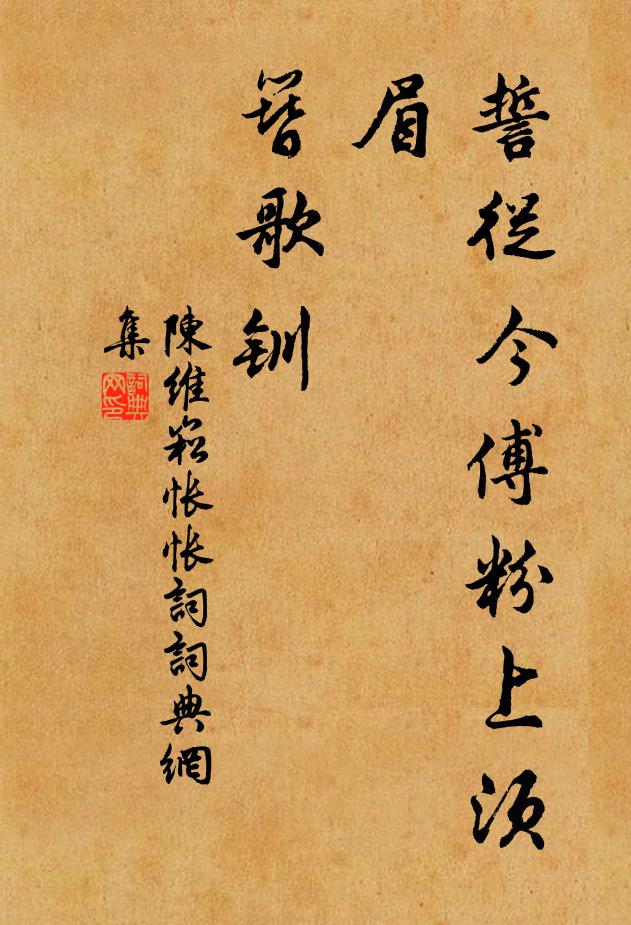 誓從今傅粉上須
眉
簪歌釧
陳維崧悵悵詞詞典網
集
詞典
网印